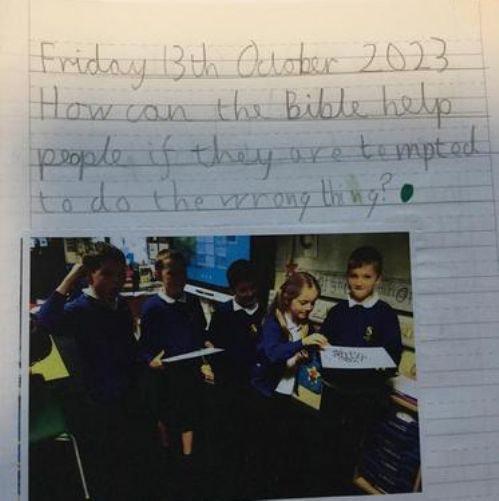 Friday 13th October 2023
How can the Bible help
people if they are tempted
to do the wrong thing?